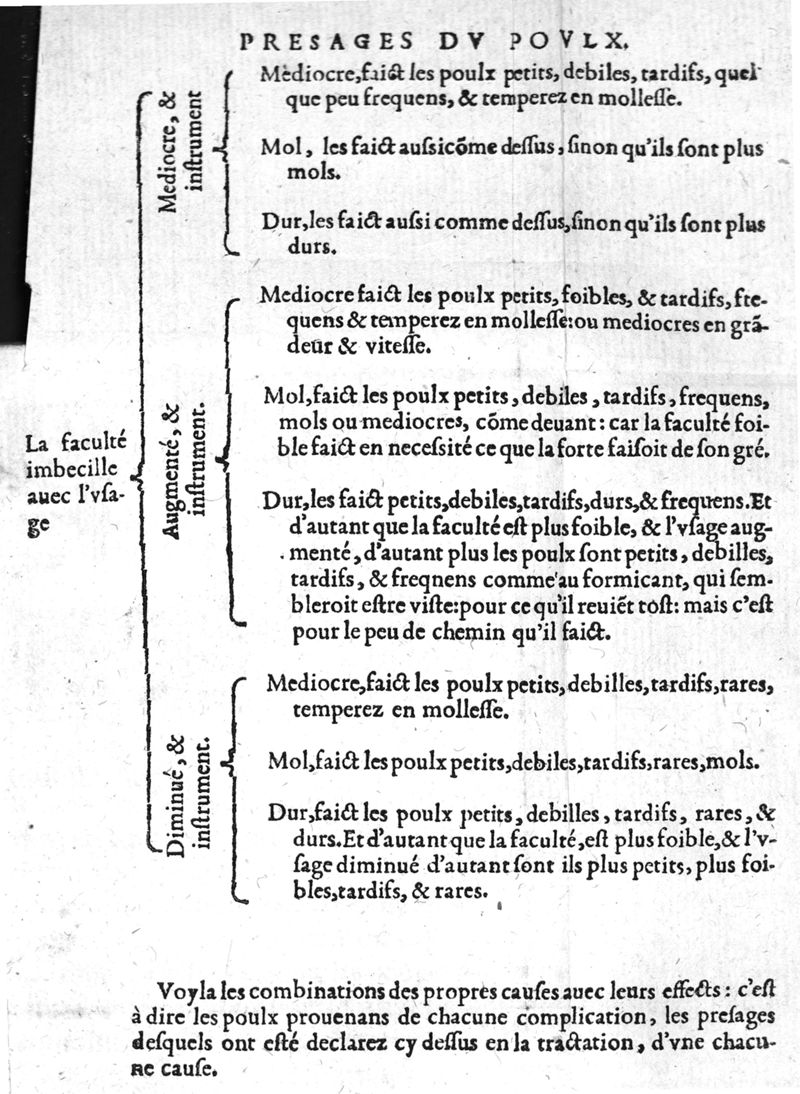 PRESAGES DV POVLX.
La faculté
imbecille
auec l'vſa-
ge
Mediocre, &
inſtrument
Mediocre,faict les poulx petits, debiles, tardifs, quel
que peu frequens, & temperez en molleſſe.
Mol, les faict auſsicõme deſſus, ſinon qu'ils ſont plus
mols.
Dur,les faict auſsi comme deſſus,ſinon qu'ils ſont plus
durs.
Augmenté, &
inſtrument.
Mediocre faict les poulx petits, foibles, & tardifs, fre-
quens & temperez en molleſſe:ou mediocres en grã-
deur & viteſſe.
Mol,faict les poulx petits, debiles, tardifs, frequens,
mols ou mediocres, cõme deuant: car la faculté foi-
ble faict en neceſsité ce que la forte faiſoit de ſon gré.
Dur,les faict petits,debiles,tardifs,durs,& frequens.Et
d'autant que la faculté eſt plus foible, & l'vſage aug-
menté, d'autant plus les poulx ſont petits, debilles,
tardifs, & freqnens comme au formicant, qui ſem-
bleroit eſtre viſte:pour ce qu'il reuiẽt toſt: mais c'eſt
pour le peu de chemin qu'il faict.
Diminué, &
inſtrument.
Mediocre,faict les poulx petits,debilles,tardifs,rares,
temperez en molleſſe.
Mol,faict les poulx petits,debiles,tardifs,rares,mols.
Dur,faict les poulx petits, debilles, tardifs, rares, &
durs.Et d'autant que la faculté,eſt plus foible,& l'v-
ſage diminué d'autant ſont ils plus petits, plus foi-
bles,tardifs, & rares.
Voyla les combinations des propres cauſes auec leurs effects: c'eſt
à dire les poulx prouenans de chacune complication, les preſages
deſquels ont eſté declarez cy deſſus en la tractation, d'vne chacu-
ne cauſe.